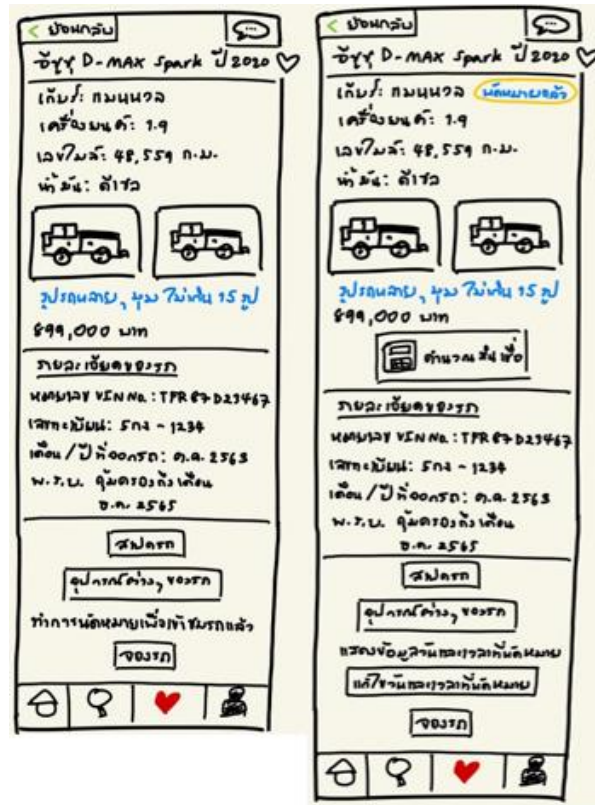 < ย้อนกลับ
อีซูซุ D-MAX Spark ปี 2020
เกียร์: แมนนวล
เครื่องยนต์: 1.9
เลขไมล์: 48,559 ก.ม.
น้ำมัน: ดีเซล
รูปรถหลายๆ มุม ไม่เกิน 15 รูป
899,000 บาท
รายละเอียดของรถ
หมายเลข VIN No.: TPR87D23467
เลขทะเบียน: 5กง - 1234
เดือน/ปีที่ออกรถ: ต.ค. 2563
พ.ร.บ. คุ้มครองถึงเดือน
ธ.ค. 2565
สเปครถ
อุปกรณ์ต่างๆ ของรถ
ทำการนัดหมายเพื่อเข้าชมรถแล้ว
จองรถ
< ย้อนกลับ
อีซูซุ D-MAX Spark ปี 2020
เกียร์: แมนนวล นัดหมายแล้ว
เครื่องยนต์: 1.9
เลขไมล์: 48,559 ก.ม.
น้ำมัน: ดีเซล
รูปรถหลายๆ มุม ไม่เกิน 15 รูป
899,000 บาท
คำนวณสินเชื่อ
รายละเอียดของรถ
หมายเลข VIN No.: TPR87D23467
เลขทะเบียน: 5กง - 1234
เดือน/ปีที่ออกรถ: ต.ค. 2563
พ.ร.บ. คุ้มครองถึงเดือน
ธ.ค. 2565
สเปครถ
อุปกรณ์ต่างๆ ของรถ
แสดงข้อมูลวันและเวลาที่นัดหมาย
แก้ไขวันและเวลาที่นัดหมาย
จองรถ